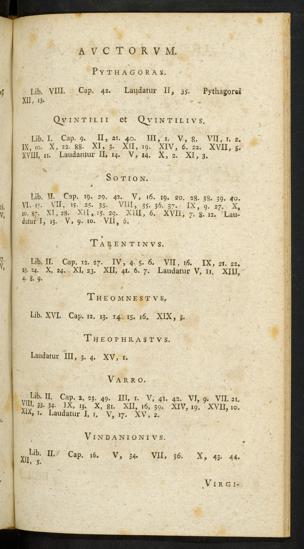 AVCTORVM.
PYTHAGORAS.
Lib. VIII. Cap. 42. Laudatur II, 35. Pythagorei
XII, 13.
QVINTILII et QVINTILIVS.
Lib. I. Cap. 9. II, 21. 40. III, 1. V, 8. VII, 1. 2.
IX, 10. X, 12. 88. XI, 3. XII, 19. XIV, 6. 22. XVII, 5.
XVIII, 11. Laudantur II, 14. V, 14. X, 2. XI, 3.
SOTION.
Lib. II. Cap. 19. 29. 42. V, 16. 19. 20. 28. 38. 39. 40.
VI. 17. VII, 15. 25. 35. VIII, 35. 36. 37. IX, 9. 27. X,
10. 87. XI, 28. XII, 15. 29. XIII, 6. XVII, 7. 8. 12. Lau-
datur I, 15. V, 9. 10. VII, 6.
TARENTINVS.
Lib. II. Cap. 12. 27. IV, 4. 5. 6. VII, 16. IX, 21. 22.
23. 24. X, 24. XI, 23. XII, 41. 6. 7. Laudatur V, 11. XIII,
4. 8. 9.
THEOMNESTVS.
Lib. XVI. Cap. 12. 13. 14. 15. 16. XIX, 5.
THEOPHRASTVS.
Laudatur III, 3. 4. XV, 1.
VARRO.
Lib. II. Cap. 2, 23. 49. III, 1. V, 41. 42. VI, 9. VII. 21.
VIII, 33. 34. IX, 15. X, 81. XII, 16, 39. XIV, 19. XVII, 10.
XIX, 1. Laudatur I, 1. V, 17. XV, 2.
VINDANIONIVS.
Lib. II. Cap. 16. V, 34. VII, 36. X, 43. 44.
XII, 5.
VIRGI-